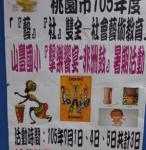 桃園市105年度
『「藝」社』雙全—社會藝術教育
山豐國小『擊樂饗宴-非洲鼓』暑期活動
活動時間：105年7月1日、4日、5日共計3日